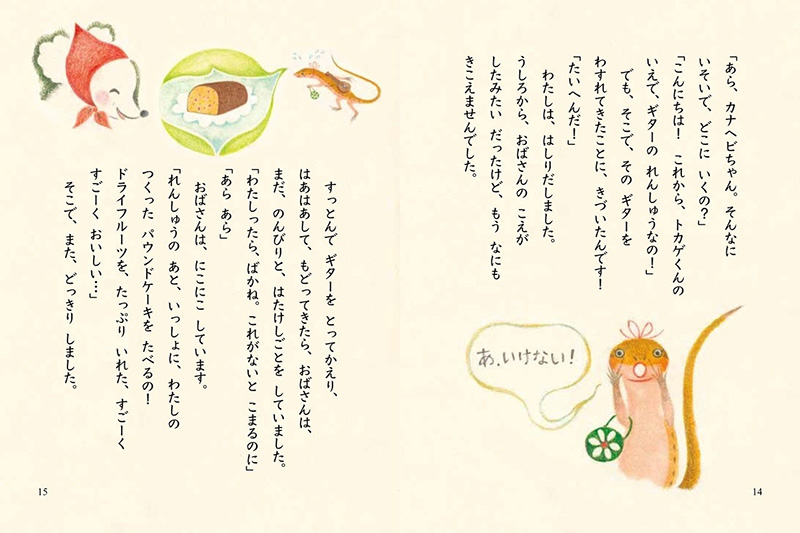 「あら、カナヘビちゃん。そんなに
いそいで、どこに いくの？」
「こんにちは！ これから、トカゲくんの
いえで、ギターの れんしゅうなの！」
でも、そこで、その ギターを
わすれてきたことに、きづいたんです！
「たいへんだ！」
わたしは、はしりだしました。
うしろから、おばさんの こえが
したみたい だったけど、もう なにも
きこえませんでした。
あ、いけない！
14
すっとんで ギターを とってかえり、
はあはあして、もどってきたら、おばさんは、
まだ、のんびりと、はたけしごとを していました。
「わたしったら、ばかね。これがないと こまるのに」
「あら あら」
おばさんは、にこにこ しています。
「れんしゅうの あと、いっしょに、わたしの
つくった パウンドケーキを たべるの！
ドライフルーツを、たっぷり いれた、すごーく
すごーく おいしい…」
そこで、また、どっきり しました。
15